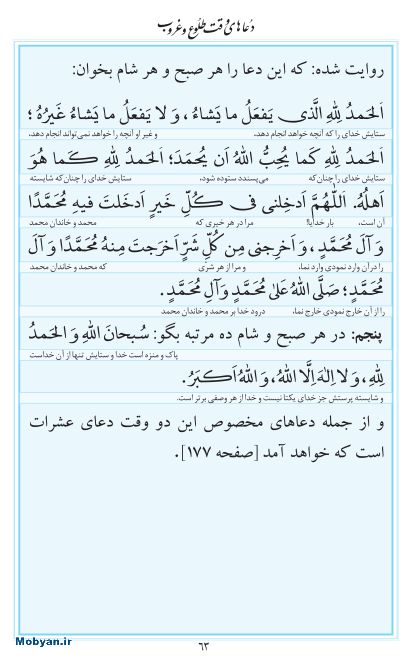 دعاهای وقت طلوع و غروب
روایت شده: که این دعا را هر صبح و هر شام بخوان:
اَلحَمدُ لِلّٰهِ الَّذی یَفعَلُ ما یَشاءُ ، وَ لا یَفعَلُ ما یَشاءُ غَیرُهُ ؛
ستایش خدای را که آنچه خواهد انجام دهد، و غیر او آنچه را خواهد نمی‌تواند انجام دهد،
اَلحَمدُ لِلّٰهِ کَما یُحِبُّ اللّٰهُ اَن یُحمَدَ؛ اَلحَمدُ لِلّٰهِ کَما هُوَ
ستایش خدای را چنان‌که می‌پسندد ستوده شود، ستایش خدای را چنان‌که شایسته
اَهلُهُ. اَللّٰهُمَّ اَدخِلنی فی کُلِّ خَیرٍ اَدخَلتَ فیهِ مُحَمَّدًا
آن است، بار خدایا! مرا در هر خیری که محمد و خاندان محمد
وَ آلَ مُحَمَّدٍ ، وَ اَخرِجنی مِن کُلِّ شَرٍّ اَخرَجتَ مِنهُ مُحَمَّدًا وَ آلَ
را در آن وارد نمودی وارد نما، و مرا از هر شری که محمد و خاندان محمد
مُحَمَّدٍ ؛ صَلَّی اللّٰهُ عَلیٰ مُحَمَّدٍ وَ آلِ مُحَمَّدٍ.
را از آن خارج نمودی خارج نما، درود خدا بر محمد و خاندان محمد
پنجم: در هر صبح و شام ده مرتبه بگو: سُبحانَ اللّٰهِ وَ الحَمدُ
پاک و منزه است خدا و ستایش تنها از آن خداست
لِلّٰهِ، وَ لا اِلٰهَ اِلَّا اللّٰهُ، وَ اللّٰهُ اَکبَرُ.
و شایسته پرستش جز خدای یکتا نیست و خدا از هر وصفی برتر است.
و از جمله دعاهای مخصوص این دو وقت دعای عشرات
است که خواهد آمد [صفحه ۱۷۷].
۶۳
Mobyan.ir